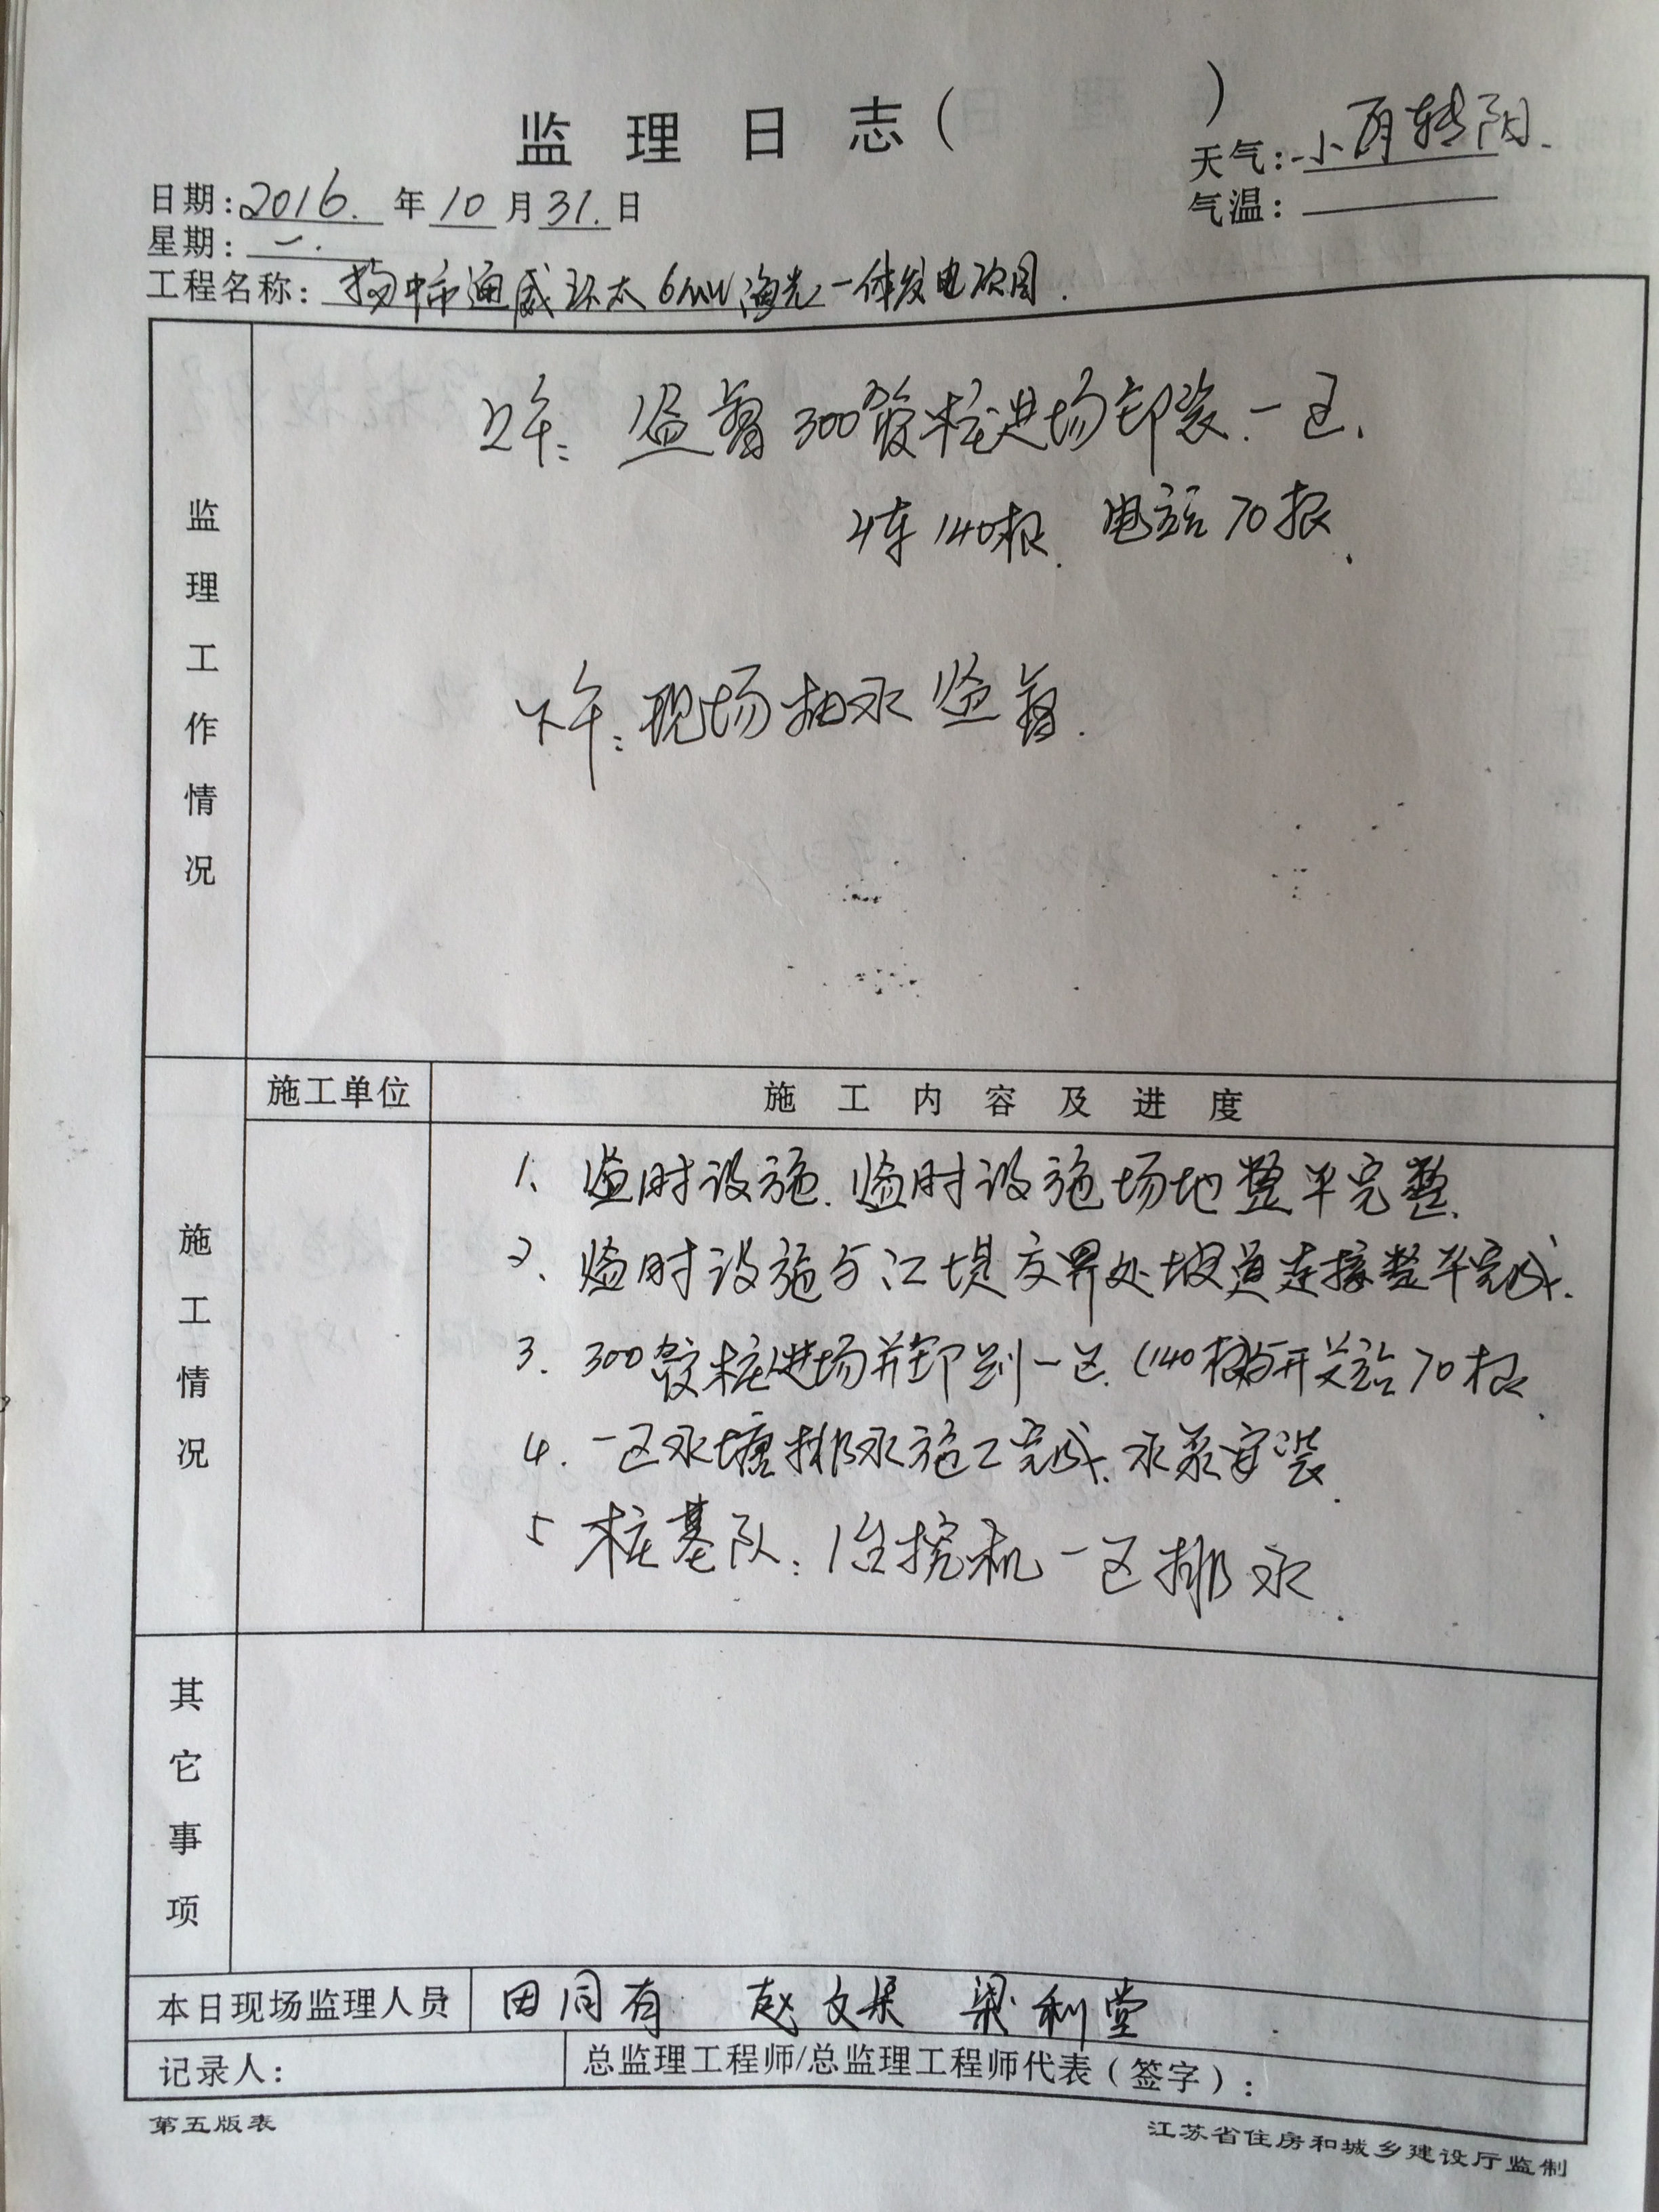 监理日志(          )
天气:小雨转阴.
日期:2016.年10月31.日
气温:
星期:一.
工程名称:扬中市通威环太6MW渔光一体发电项目.
监理工作情况
上午:监督300管桩进场卸装.一区.
4车140根.电站70根.
下午:现场抽水监督.
施工情况
施工单位 施工内容及进度
1、临时设施.临时设施场地整平完整.
2、临时设施与江堤交界处坡道连接整平完成.
3.300管桩进场并卸到一区.(140根与开关站70根.
4.一区水塘排水施工完成.水泵安装.
5桩基队:1台挖机一区排水.
其它事项
本日现场监理人员 田同有 赵文渠 梁利堂
记录人: 总监理工程师/总监理工程师代表(签字):
第五版表 江苏省住房和城乡建设厅监制